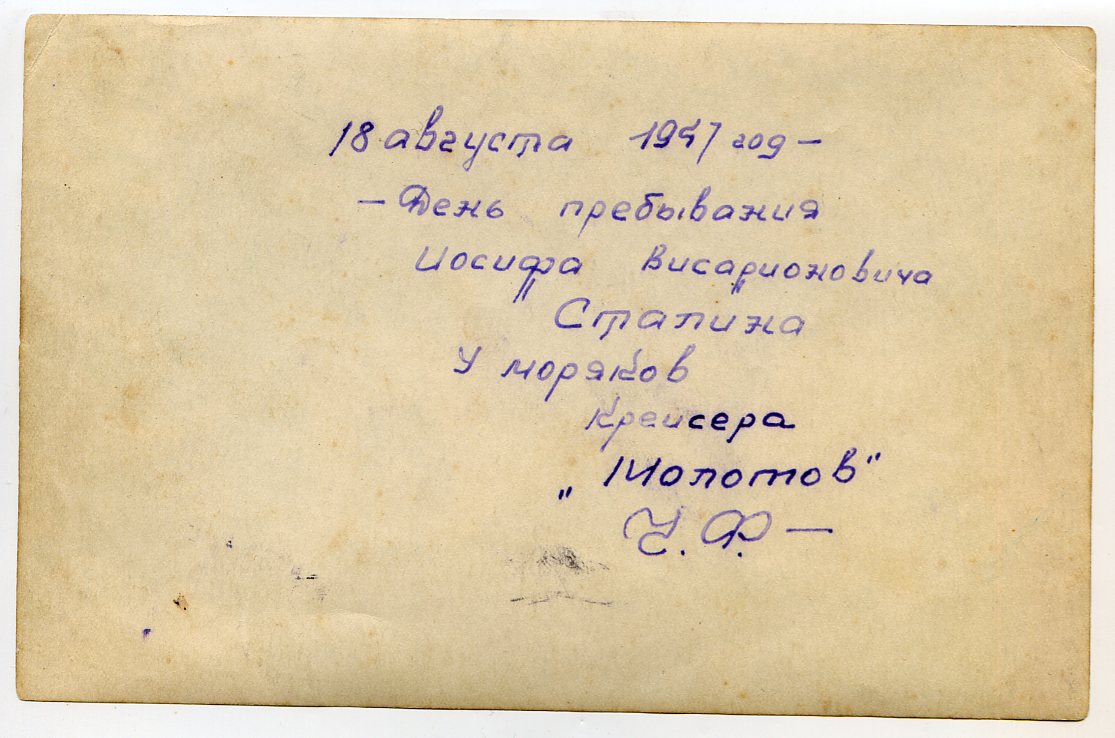 18 августа 1947 год —
— День пребывания
Иосифа Висарионовича
Сталина
У моряков
Крейсера
„Молотов"
Ч. Ф. —